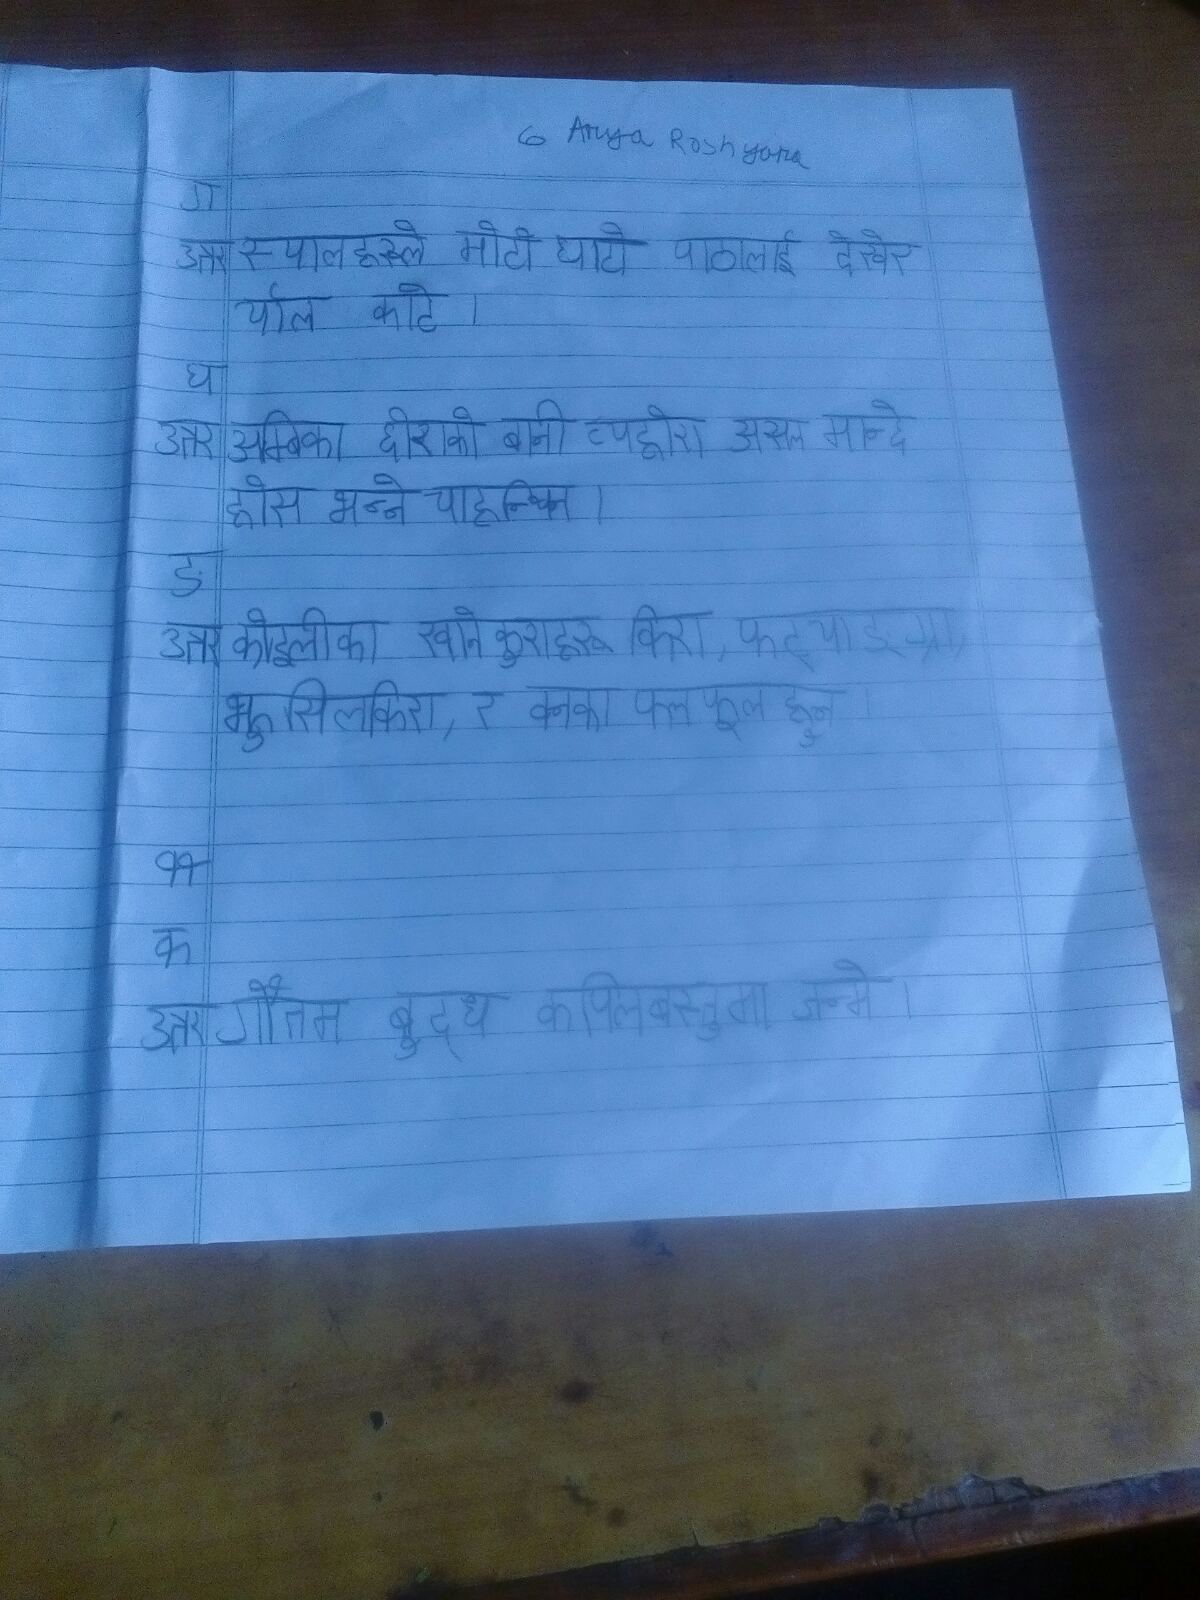 6 Arya Roshyara
ग
उत्तर स्यालहरुले मोटो घाटो पाठालाई देखेर
र्याल काटे ।
घ
उत्तर अम्बिका छोराको बानी व्यहोरा असल मान्दे
होस भन्ने चाहन्थिन ।
ङ
उत्तर कोइलीका खाने कुराहरू किरा, फट्याङ्ग्रा,
झुसिलकिरा, र वनका फलफूल हुन ।
११
क
उत्तर गौतम बुद्ध कपिलबस्तुमा जन्मे ।